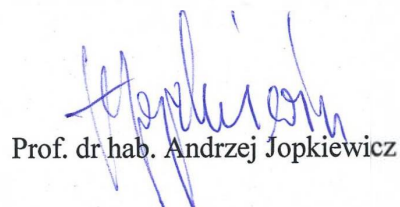 Prof. dr hab. Andrzej Jopkiewicz